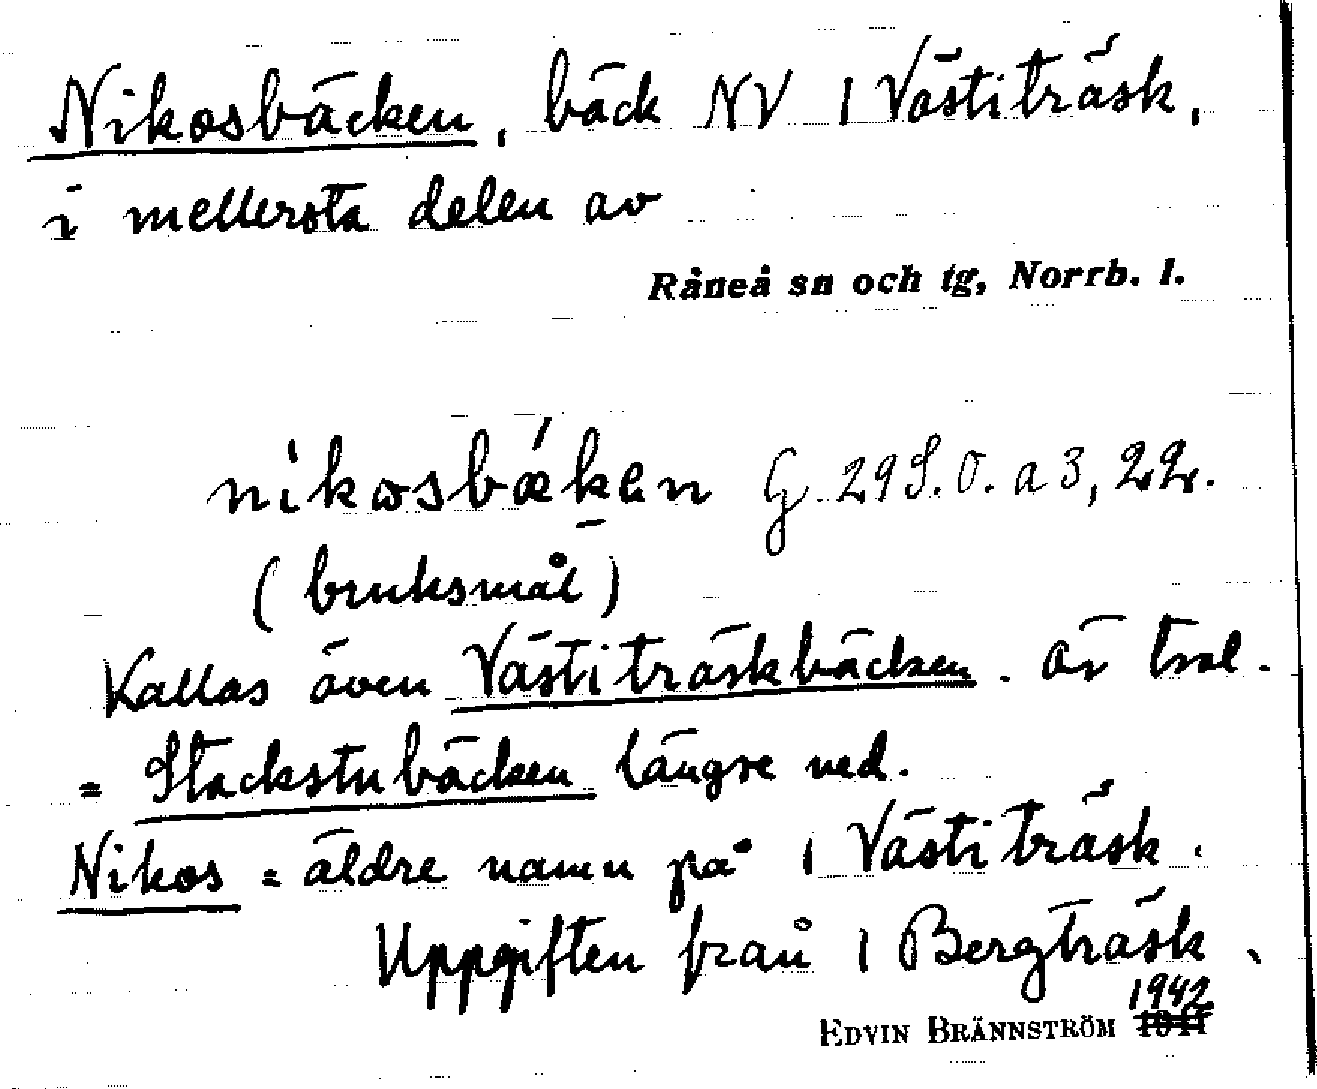 Nikosbäcken, bäck NV 1 Västiträsk,
i mellersta delen av
Råneå sn och tg, Norrb. l.
nikosbæken G. 29 S.O. a 3, 22.
(bruksmål)
Kallas även Västiträskbäcken. Är trol.
= Stackstubäcken längre ned.
Nikos = äldre namn på 1 Västiträsk.
Uppgiften från 1 Bergträsk.
1942
EDVIN BRÄNNSTRÖM 1941